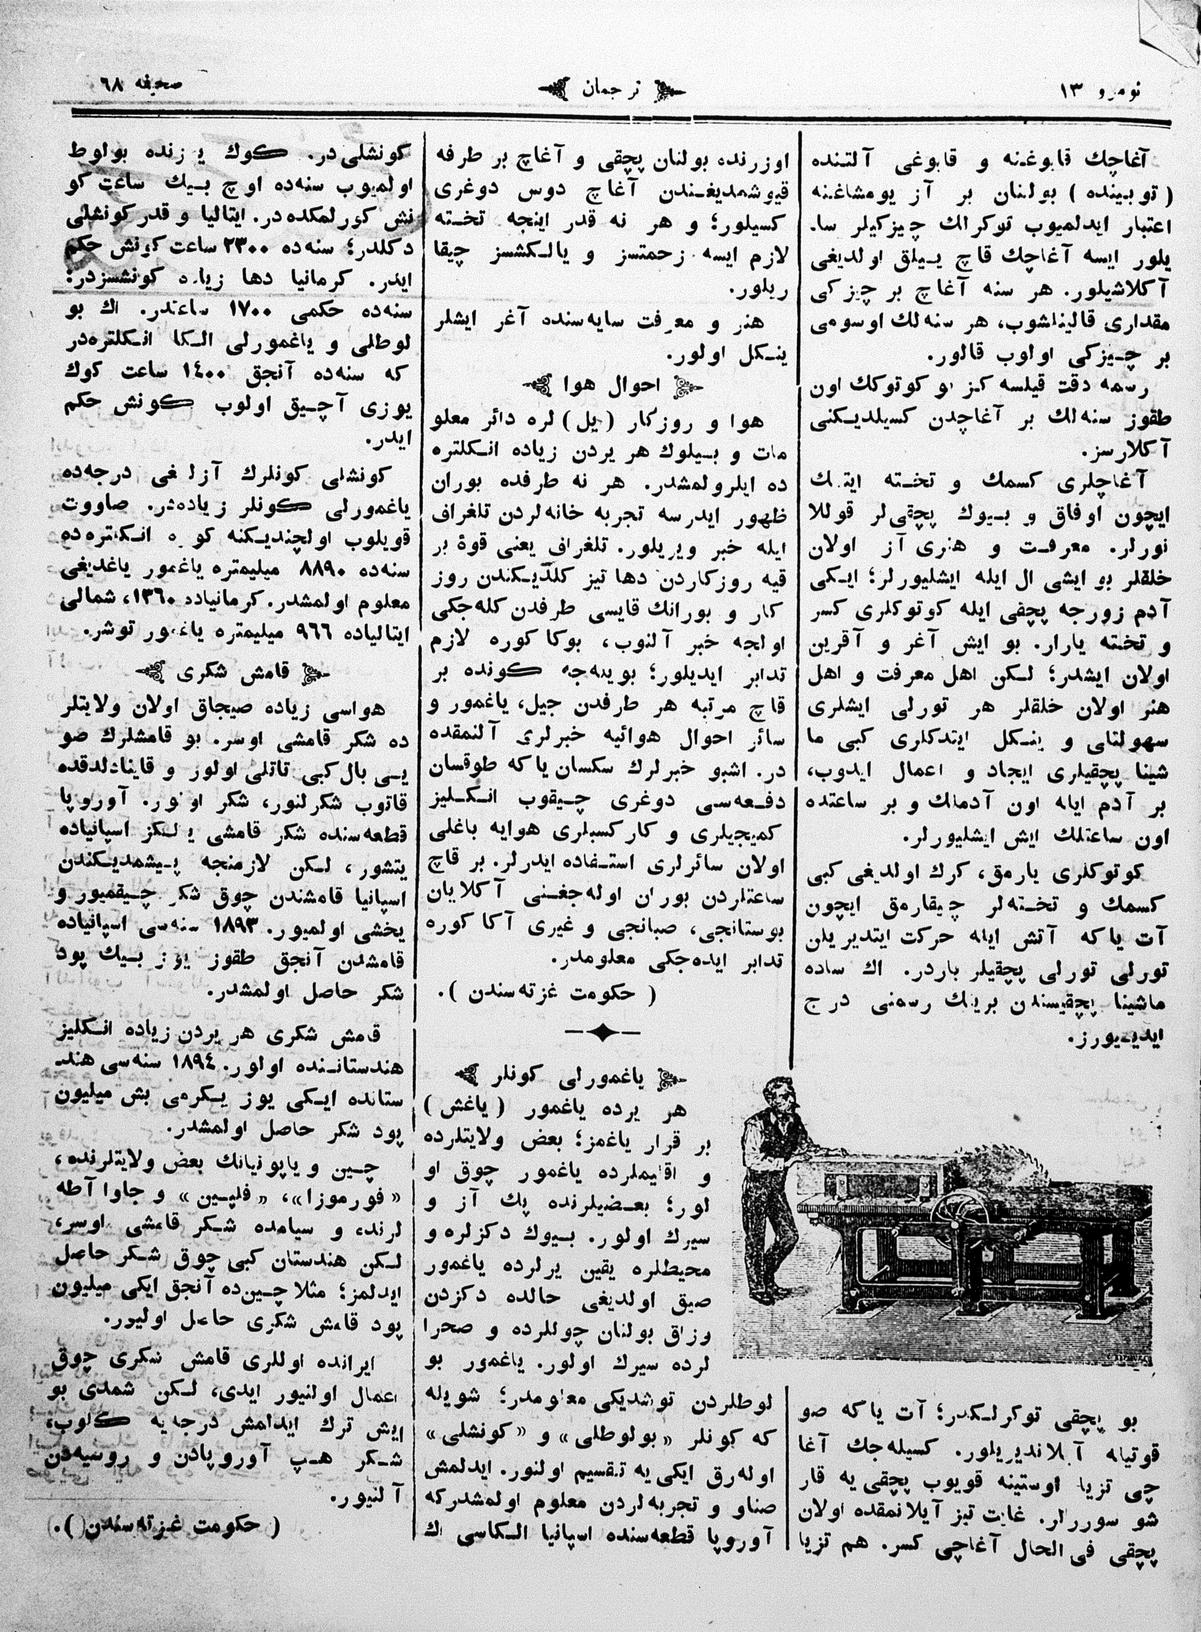 نومرو ١٣
ترجمان
صحیفه ٦٨
آغاچك قابوغنه و قابوغی آلتنده
(توبینده) بولنان بر آز یومشاغنه
اعتبار ایدلمیوب توکرلك چیزکیلر سا-
یلور ایسه آغاچك قاچ ییلق اولدیغی
آکلاشیلور. هر سنه آغاچ بر چیزکی
مقداری قالینلشوب، هر سنه‌لك اوسومی
بر چیزکی اولوب قالور.
رسمه دقت قیلسه‌کز بو کوتوکك اون
طقوز سنه‌لك بر آغاچدن کسیلدیکنی
آکلارسز.
آغاچلری کسمك و تخته ایتمك
ایچون اوفاق و بیوك پچقی‌لر قوللا
نورلر. معرفت و هنری آز اولان
خلقلر بو ایشی ال ایله ایشلیورلر؛ ایکی
آدم زورجه پچقی ایله کوتوکلری کسر
و تخته یارار. بو ایش آغر و آقرین
اولان ایشدر؛ لکن اهل معرفت و اهل
هنر اولان خلقلر هر تورلی ایشلری
سهولتلی و ینکل ایتدکلری کبی ما
شینا پچقیلری ایجاد و اعمال ایدوب،
بر آدم ایله اون آدملك و بر ساعتده
اون ساعتلك ایش ایشلیورلر.
کوتوکلری یارمق، کرك اولدیغی کبی
کسمك و تخته‌لر چیقارمق ایچون
آت یاکه آتش ایله حرکت ایتدیریلن
تورلی تورلی پچقیلر باردر. اك ساده
ماشینا پچقیسندن برینك رسمنی درج
ایدییورز.
بو پچقی توکرلکدر؛ آت یاکه صو
قوتیله آیلاندیریلور. کسیله‌جك آغا
چی تزیا اوستینه قویوب پچقی‌یه قار
شو سوررلر. غایت تیز آیلانمقده اولان
پچقی فی الحال آغاچی کسر. هم تزیا
اوزرنده بولنان پچقی و آغاچ بر طرفه
قیوشمدیغندن آغاچ دوس دوغری
کسیلور؛ و هر نه قدر اینجه تخته
لازم ایسه زحمتسز و یالکشسز چیقا
ریلور.
هنر و معرفت سایه‌سنده آغر ایشلر
ینکل اولور.
احوال هوا
هوا و روزکار (یل) لره دائر معلو
مات و بیلوك هر یردن زیاده انکلتره
ده ایلرولمشدر. هر نه طرفده بوران
ظهور ایدرسه تجربه خانه‌لردن تلغراف
ایله خبر ویریلور. تلغراف یعنی قوۀ بر
قیه روزکاردن دها تیز کلدیکندن روز
کار و بورانك قایسی طرفدن کله‌جکی
اولجه خبر آلنوب، بوکا کوره لازم
تدابر ایدیلور؛ بویله‌جه کونده بر
قاچ مرتبه هر طرفدن جیل، یاغمور و
سائر احوال هوائیه خبرلری آلنمقده
در. اشبو خبرلرك سکسان یاکه طوقسان
دفعه‌سی دوغری چیقوب انکلیز
کمیجیلری و کارکسبلری هوایه باغلی
اولان سائرلری استفاده ایدرلر. بر قاچ
ساعتلردن بوران اوله‌جغنی آکلایان
بوستانجی، صبانجی و غیری آکا کوره
تدابر ایده‌جکی معلومدر.
(حکومت غزته‌سندن).
یاغمورلی کونلر
هر یرده یاغمور (یاغش)
بر قرار یاغمز؛ بعض ولایتلرده
و اقلیملرده یاغمور چوق او
لور؛ بعضیلرنده پك آز و
سیرك اولور. بیوك دکزلره و
محیطلره یقین یرلرده یاغمور
صیق اولدیغی حالده دکزدن
وزاق بولنان چوللرده و صحرا
لرده سیرك اولور. یاغمور بو
لوطلردن توشدیکی معلومدر؛ شویله
که کونلر «بولوطلی» و «کونشلی»
اوله‌رق ایکی‌یه تقسیم اولنور. ایدلمش
صناو و تجربه‌لردن معلوم اولمشدرکه
آوروپا قطعه‌سنده اسپانیا الکاسی اك
کونشلی‌در. کوك یوزنده بولوط
اولمیوب سنه‌ده اوچ بیك ساعت کو
نش کورلمکده‌در. ایتالیا و قدر کونشلی
دکلدر؛ سنه‌ده ٢٣٠٠ ساعت کونش حکم
ایدر. کرمانیا دها زیاده کونشسزدر؛
سنه‌ده حکمی ١٧٠٠ ساعتدر. اك بو
لوطلی و یاغمورلی الکا انکلتره‌در
که سنه‌ده آنجق ١٤٠٠ ساعت کوك
یوزی آچیق اولوب کونش حکم
ایدر.
کونشلی کونلرك آزلغی درجه‌ده
یاغمورلی کونلر زیاده‌در. صاووت
قویلوب اولچندیکنه کوره انکلتره‌ده
سنه‌ده ٨٨٩٠ میلیمتره یاغمور یاغدیغی
معلوم اولمشدر. کرمانیاده ١٣٦٠، شمالی
ایتالیاده ٩٦٦ میلیمتره یاغمور توشر.
قامش شکری
هواسی زیاده صیجاق اولان ولایتلر
ده شکر قامشی اوسر. بو قامشلرك صو
یی بال کبی تاتلی اولور و قاینادلدقده
قاتوب شکرلنور، شکر اولور. آوروپا
قطعه‌سنده شکر قامشی یالکز اسپانیاده
یتشور، لکن لازمنجه پیشمدیکندن
اسپانیا قامشندن چوق شکر چیقمیور و
یخشی اولمیور. ١٨٩٣ سنه‌سی اسپانیاده
قامشدن آنجق طقوز یوز بیك پود
شکر حاصل اولمشدر.
قامش شکری هر یردن زیاده انکلیز
هندستاننده اولور. ١٨٩٤ سنه‌سی هند
ستانده ایکی یوز یکرمی بش میلیون
پود شکر حاصل اولمشدر.
چین و یاپونیانك بعض ولایتلرنده،
«فورموزا»، «فلپین» و جاوا آطه
لرنده و سیامده شکر قامشی اوسر،
لکن هندستان کبی چوق شکر حاصل
ایدلمز؛ مثلا چین‌ده آنجق ایکی میلیون
پود قامش شکری حاصل اولیور.
ایرانده اوللری قامش شکری چوق
اعمال اولنیور ایدی، لکن شمدی بو
ایش ترك ایدلمش درجه‌یه کلوب،
شکر هپ آوروپادن و روسیه‌دن
آلنیور.
(حکومت غزته‌سندن).